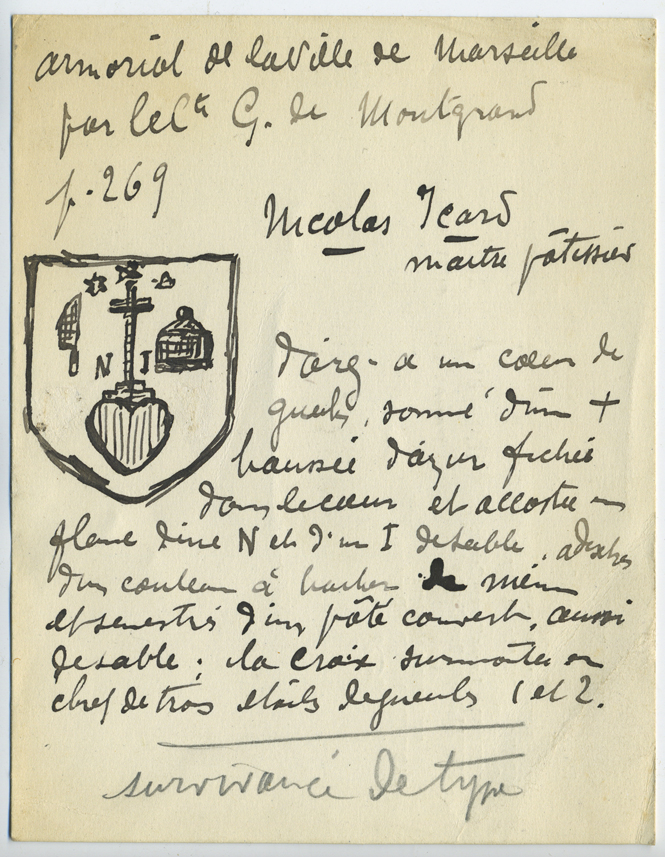 armorial de la Ville de Marseille
par le Cte G. de Montgrand
p. 269
Nicolas Icard
maitre pâtissier
N I
d'arg- a un cœur de
gueules, sommé d'une +
haussée d'azur fichée
dans le cœur et accostée en
flanc d'une N et d'un I de sable, adextré
d'un couteau à hacher de même
et senestré d'un pâté couvert, aussi
de sable ; la croix surmontée en
chef de trois étoiles de gueules 1 et 2.
survivance de type